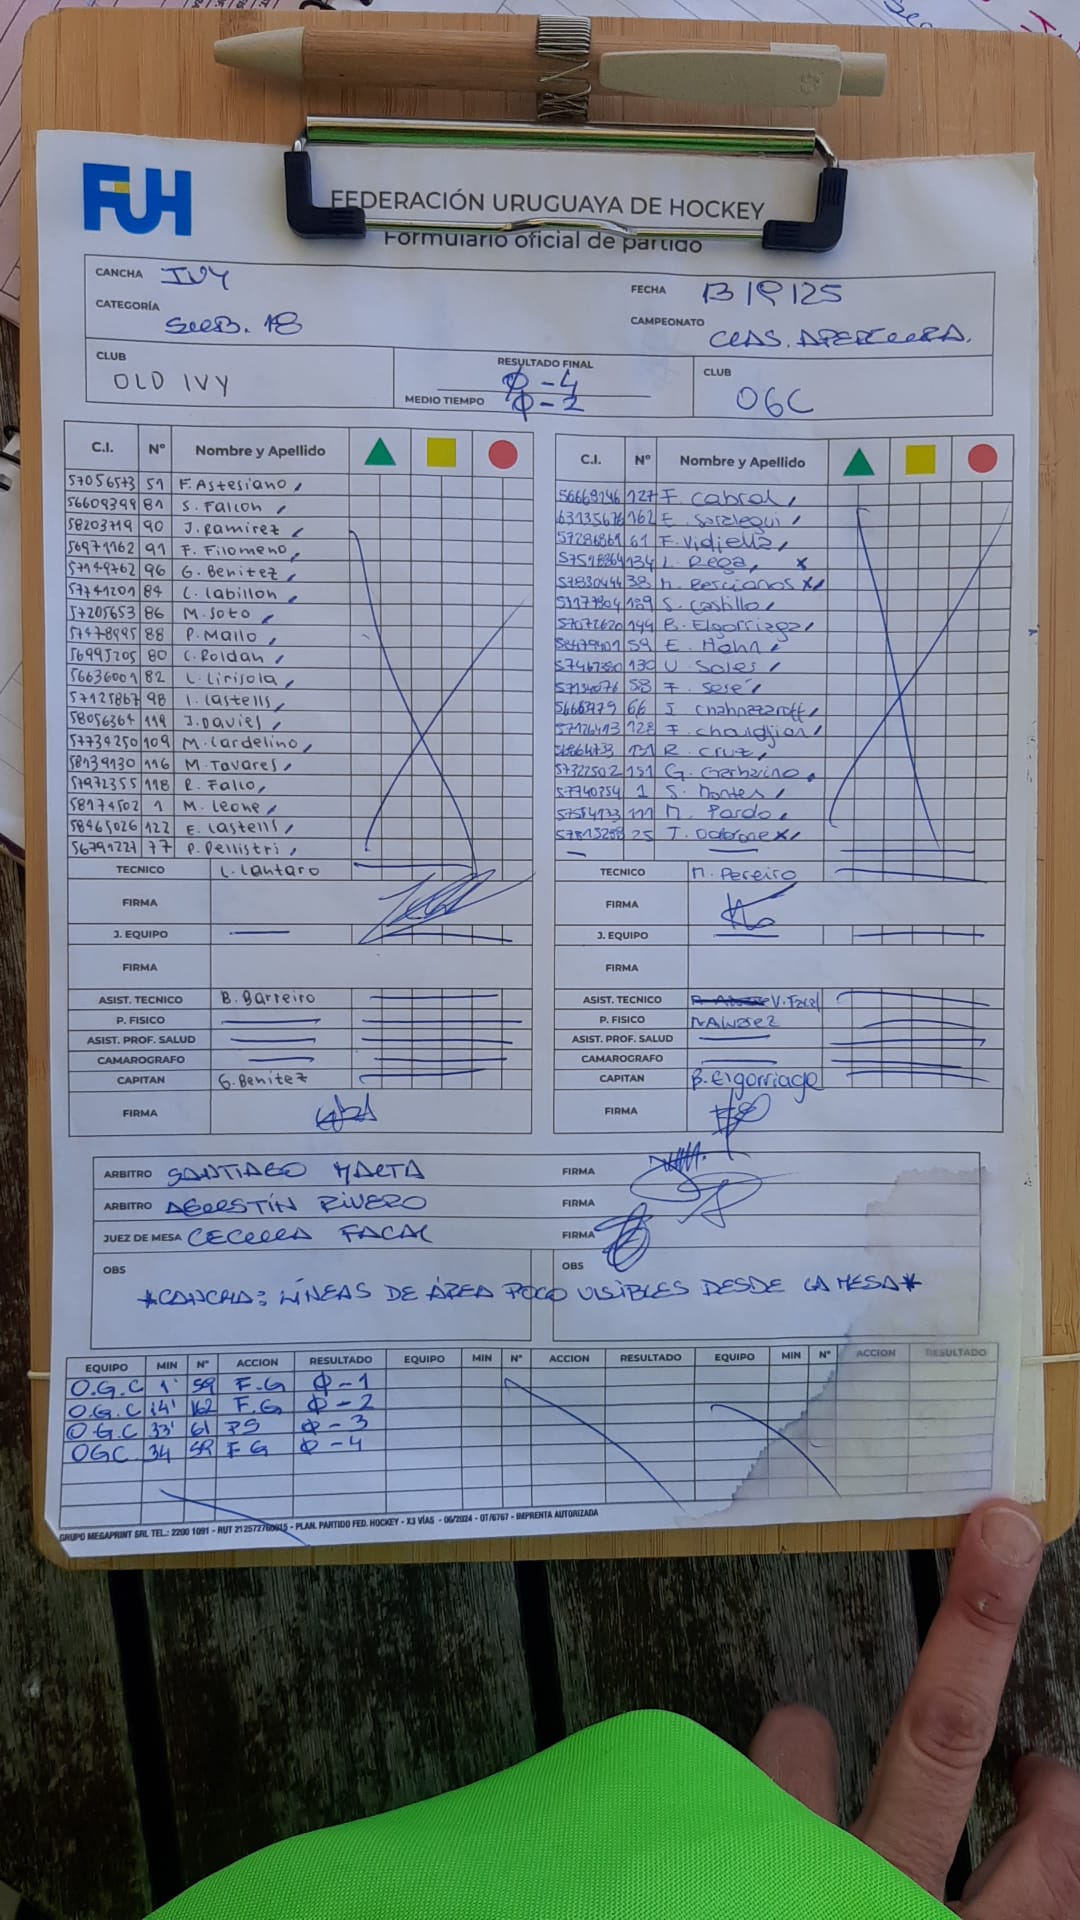 FUH
FEDERACIÓN URUGUAYA DE HOCKEY
Formulario oficial de partido
CANCHA IVY FECHA 13/9/25
CATEGORÍA SUB. 18 CAMPEONATO CLAS. APERTURA.
CLUB OLD IVY RESULTADO FINAL Ø-4 CLUB OGC
MEDIO TIEMPO Ø-2
C.I. Nº Nombre y Apellido C.I. Nº Nombre y Apellido
57056573 51 F. Astesiano 56669246 127 F. Cabral
56609399 81 S. Falcon 63135676 162 E. Saralegui
58203719 90 J. Ramirez 57286861 61 F. Vidiella
56971162 91 F. Filomeno 57518864 134 L. Rega X
57149762 96 G. Benitez 57830444 38 M. Bescianos X
57741201 84 C. Cabillon 189 S. Castillo
57205653 86 M. Soto 57072620 144 B. Elgorriaga
57478995 88 P. Mallo 59 E. Hahn
56995205 80 C. Roldan 57467380 130 U. Sales
56636001 82 L. Lirisola 58 F. Sesé
57125867 98 I. Castells 66
58056364 119 J. Davies 57126413 128 F.
57734250 109 M. Cardelino 131 R. Cruz
58139130 116 M. Tavares 57322502 151 G. Garbarino
57972355 118 R. Fallo 57940254 1 S. Montes
58174502 1 M. Leone 111 M. Pardo
58465026 122 E. Castells 25 J. X
56791221 77 P. Pellistri
TECNICO C. Cantaro TECNICO M. Pereiro
FIRMA FIRMA
J. EQUIPO J. EQUIPO
FIRMA FIRMA
ASIST. TECNICO B. Barreiro ASIST. TECNICO V. Facal
P. FISICO P. FISICO
ASIST. PROF. SALUD ASIST. PROF. SALUD
CAMAROGRAFO CAMAROGRAFO
CAPITAN G. Benitez CAPITAN B. Elgorriaga
FIRMA FIRMA
ARBITRO SANTIAGO MALTA FIRMA
ARBITRO AGUSTÍN RIVERO FIRMA
JUEZ DE MESA CECILIA FACAL FIRMA
OBS OBS
*CANCHA: LÍNEAS DE ÁREA POCO VISIBLES DESDE LA MESA*
EQUIPO MIN Nº ACCION RESULTADO EQUIPO MIN Nº ACCION RESULTADO EQUIPO MIN Nº ACCION RESULTADO
O.G.C 1' 59 F.G Ø-1
O.G.C 14' 162 F.G Ø-2
O.G.C 33' 61 PS Ø-3
OGC 34 59 FG Ø-4
GRUPO MEGAPRINT SRL TEL.: 2200 1091 - RUT 212572760015 - PLAN. PARTIDO FED. HOCKEY - X3 VÍAS - 06/2024 - OT/6767 - IMPRENTA AUTORIZADA